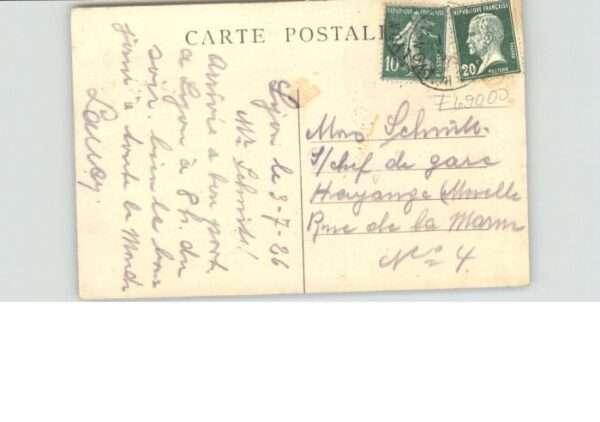 CARTE POSTALE
REPUBLIQUE FRANÇAISE
10
REPUBLIQUE FRANÇAISE
20
POSTES
F 69000
Lyon le 3-7-26
Mr Schmitt!
Arrivée a bon port
a Lyon à 8 h. du
soir. bien le bon
jour à toute le Monde
Mrs Schmitt.
S/chef de gare
Hayange Moselle
Rue de la Marne
No = 4.